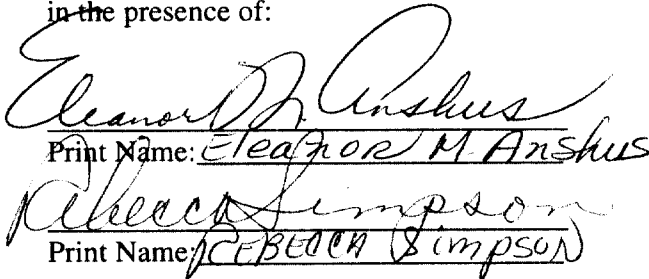 in the presence of:
Eleanor M. Anshus
Print Name: Eleanor M. Anshus
Rebecca Simpson
Print Name: REBECCA SIMPSON